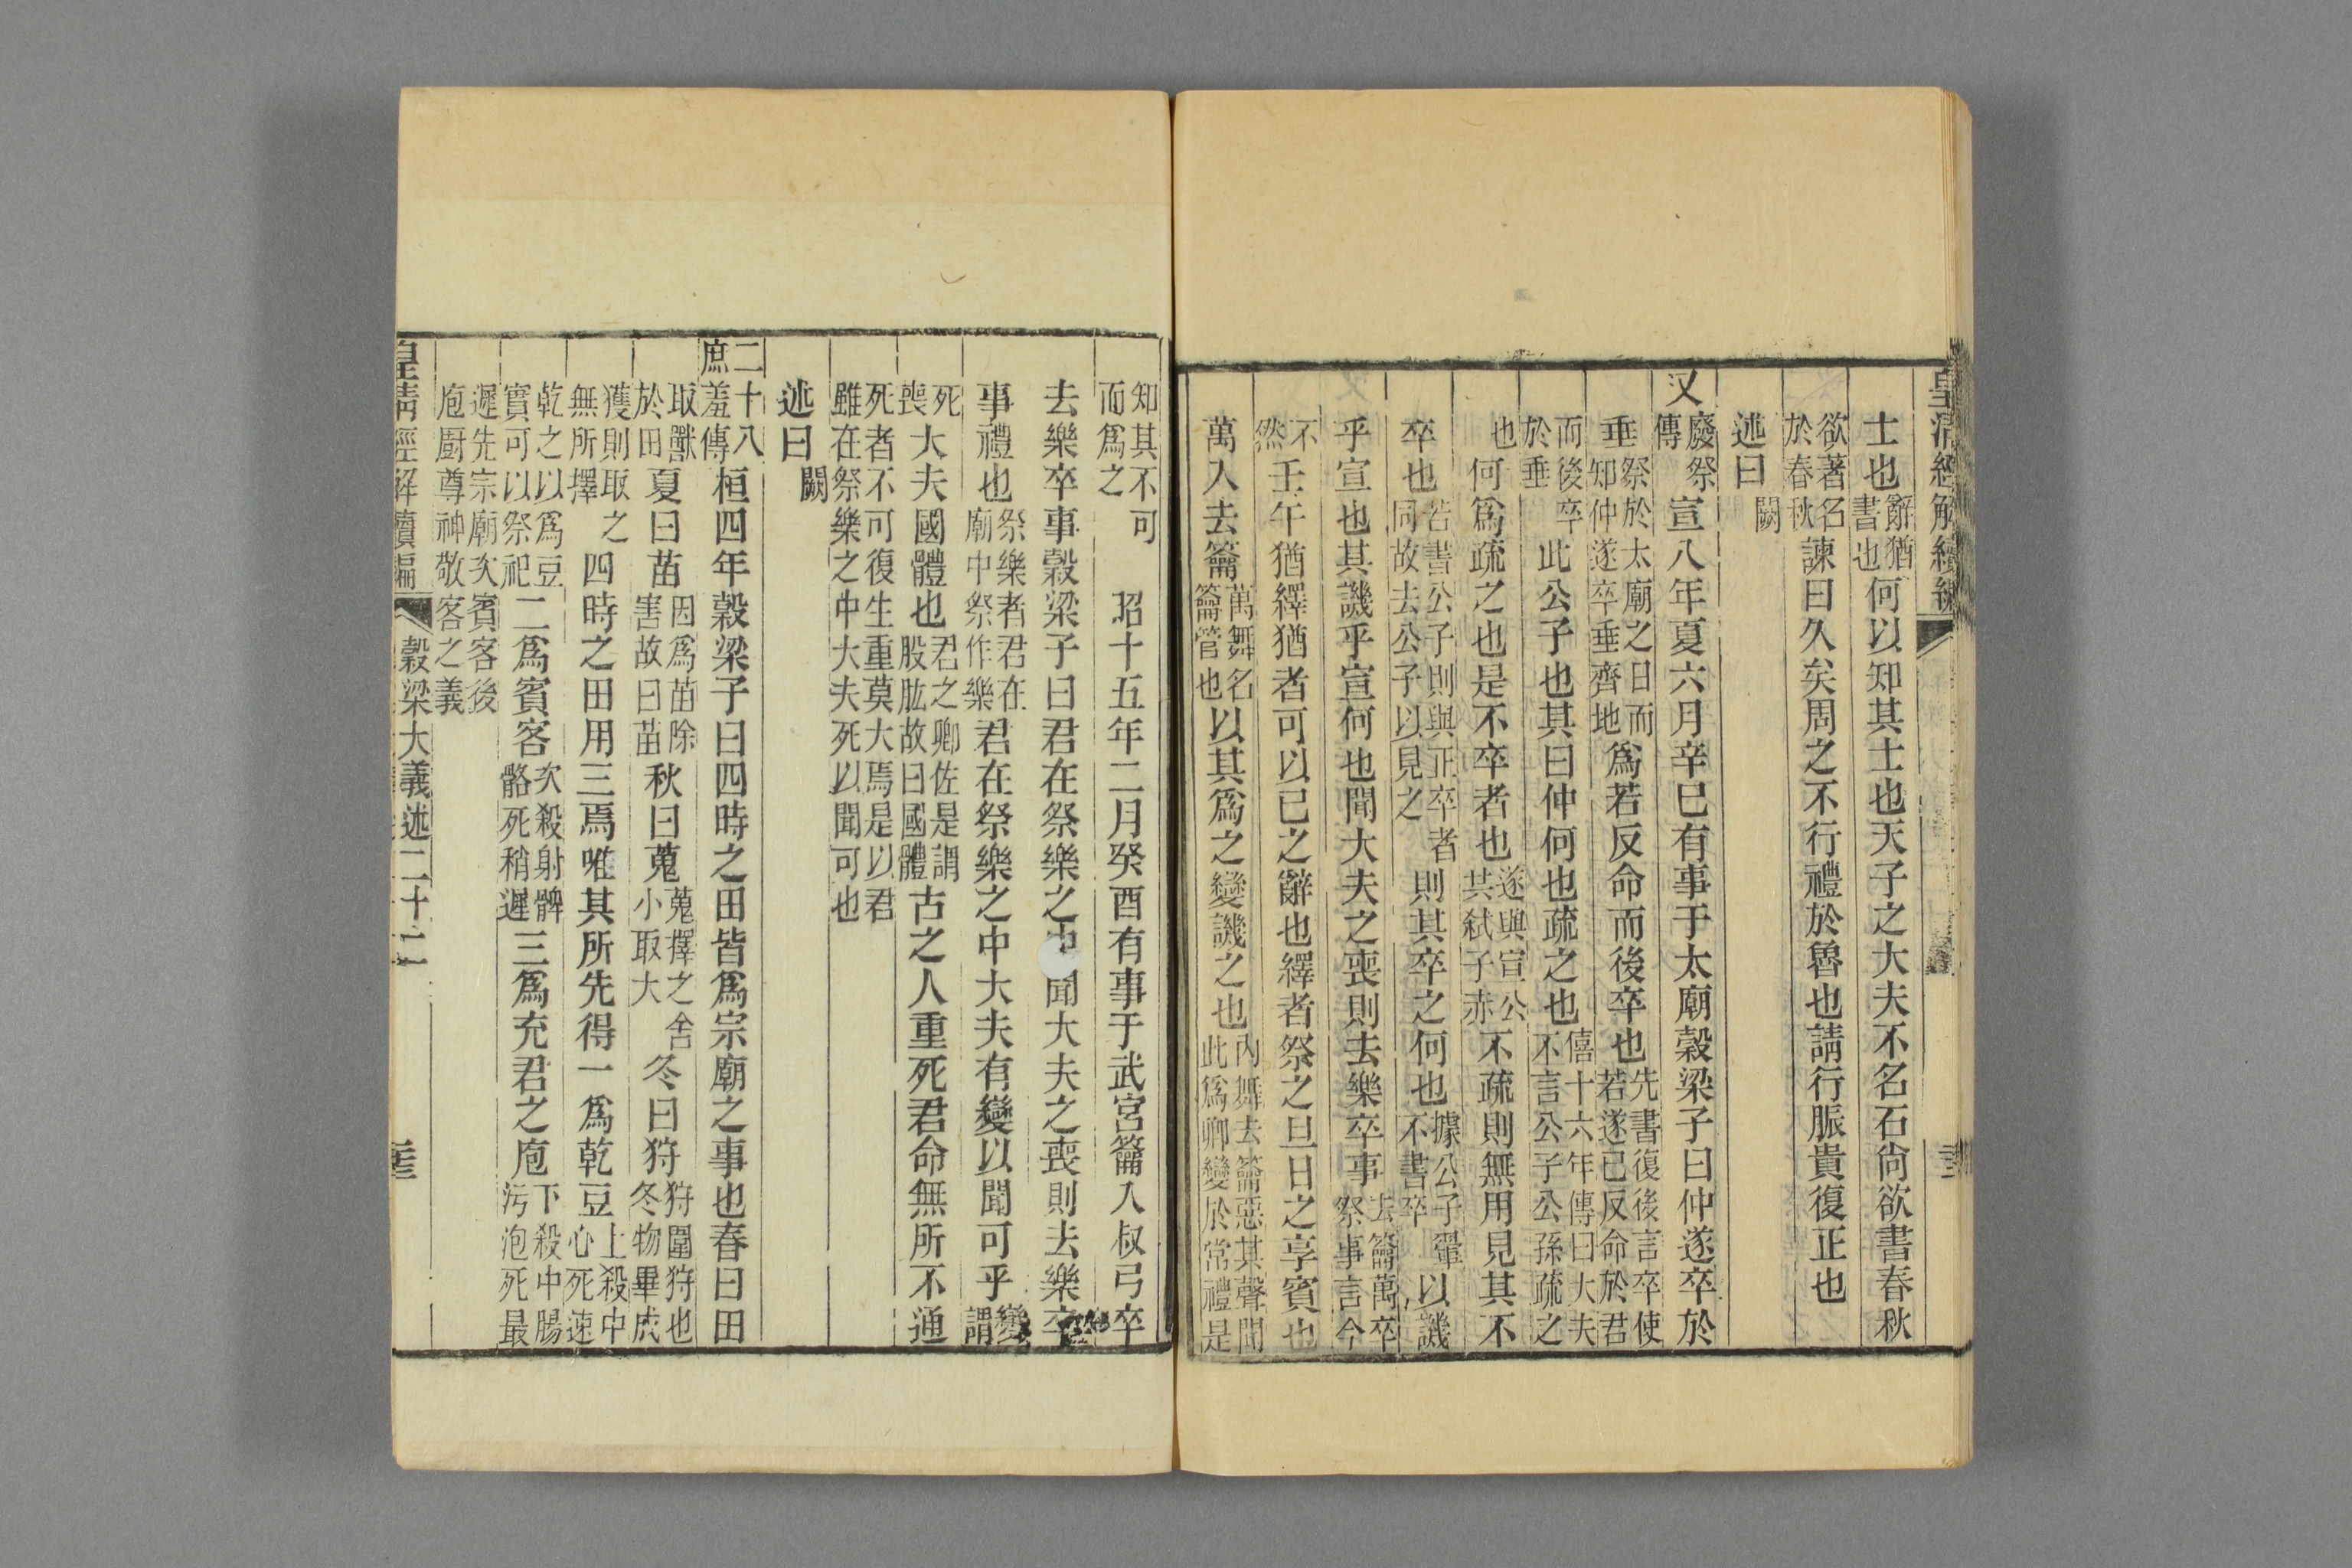 皇清經解續編
士也辭猶書也何以知其士也天子之大夫不名石尙欲書春秋
欲著名於春秋諫曰久矣周之不行禮於魯也請行脤貴復正也
述曰闕
又廢祭傳宣八年夏六月辛巳有事于太廟穀梁子曰仲遂卒於
垂祭於太廟之日而知仲遂卒垂齊地爲若反命而後卒也先書復後言卒使若遂已反命於君
而後卒於垂此公子也其曰仲何也疏之也僖十六年傳曰大夫不言公子公孫疏之
也何爲疏之也是不卒者也遂與宣公共弒子赤不疏則無用見其不
卒也若書公子則與正卒者同故去公子以見之則其卒之何也據公子翬不書卒以譏
乎宣也其譏乎宣何也聞大夫之喪則去樂卒事去籥萬卒祭事言今
不然壬午猶繹猶者可以已之辭也繹者祭之旦日之享賓也
萬入去籥萬舞名籥管也以其爲之變譏之也內舞去籥惡其聲聞此爲卿變於常禮是
知其不可而爲之昭十五年二月癸酉有事于武宮籥入叔弓卒
去樂卒事穀梁子曰君在祭樂之中聞大夫之喪則去樂卒
事禮也祭樂者君在廟中祭作樂君在祭樂之中大夫有變以聞可乎變謂
死喪大夫國體也君之卿佐是謂股肱故曰國體古之人重死君命無所不通
死者不可復生重莫大焉是以君雖在祭樂之中大夫死以聞可也
述曰闕
二十八庶羞傳桓四年穀梁子曰四時之田皆爲宗廟之事也春曰田
取獸於田夏曰苗因爲苗除害故曰苗秋曰蒐蒐擇之舍小取大冬曰狩狩圍狩也冬物畢成
獲則取之無所擇四時之田用三焉唯其所先得一爲乾豆上殺中心死速
乾之以爲豆實可以祭祀二爲賓客次殺射髀骼死稍遲三爲充君之庖下殺中腸污泡死最
遲先宗廟次賓客後庖廚尊神敬客之義
皇清經解續編 穀梁大義述二十二